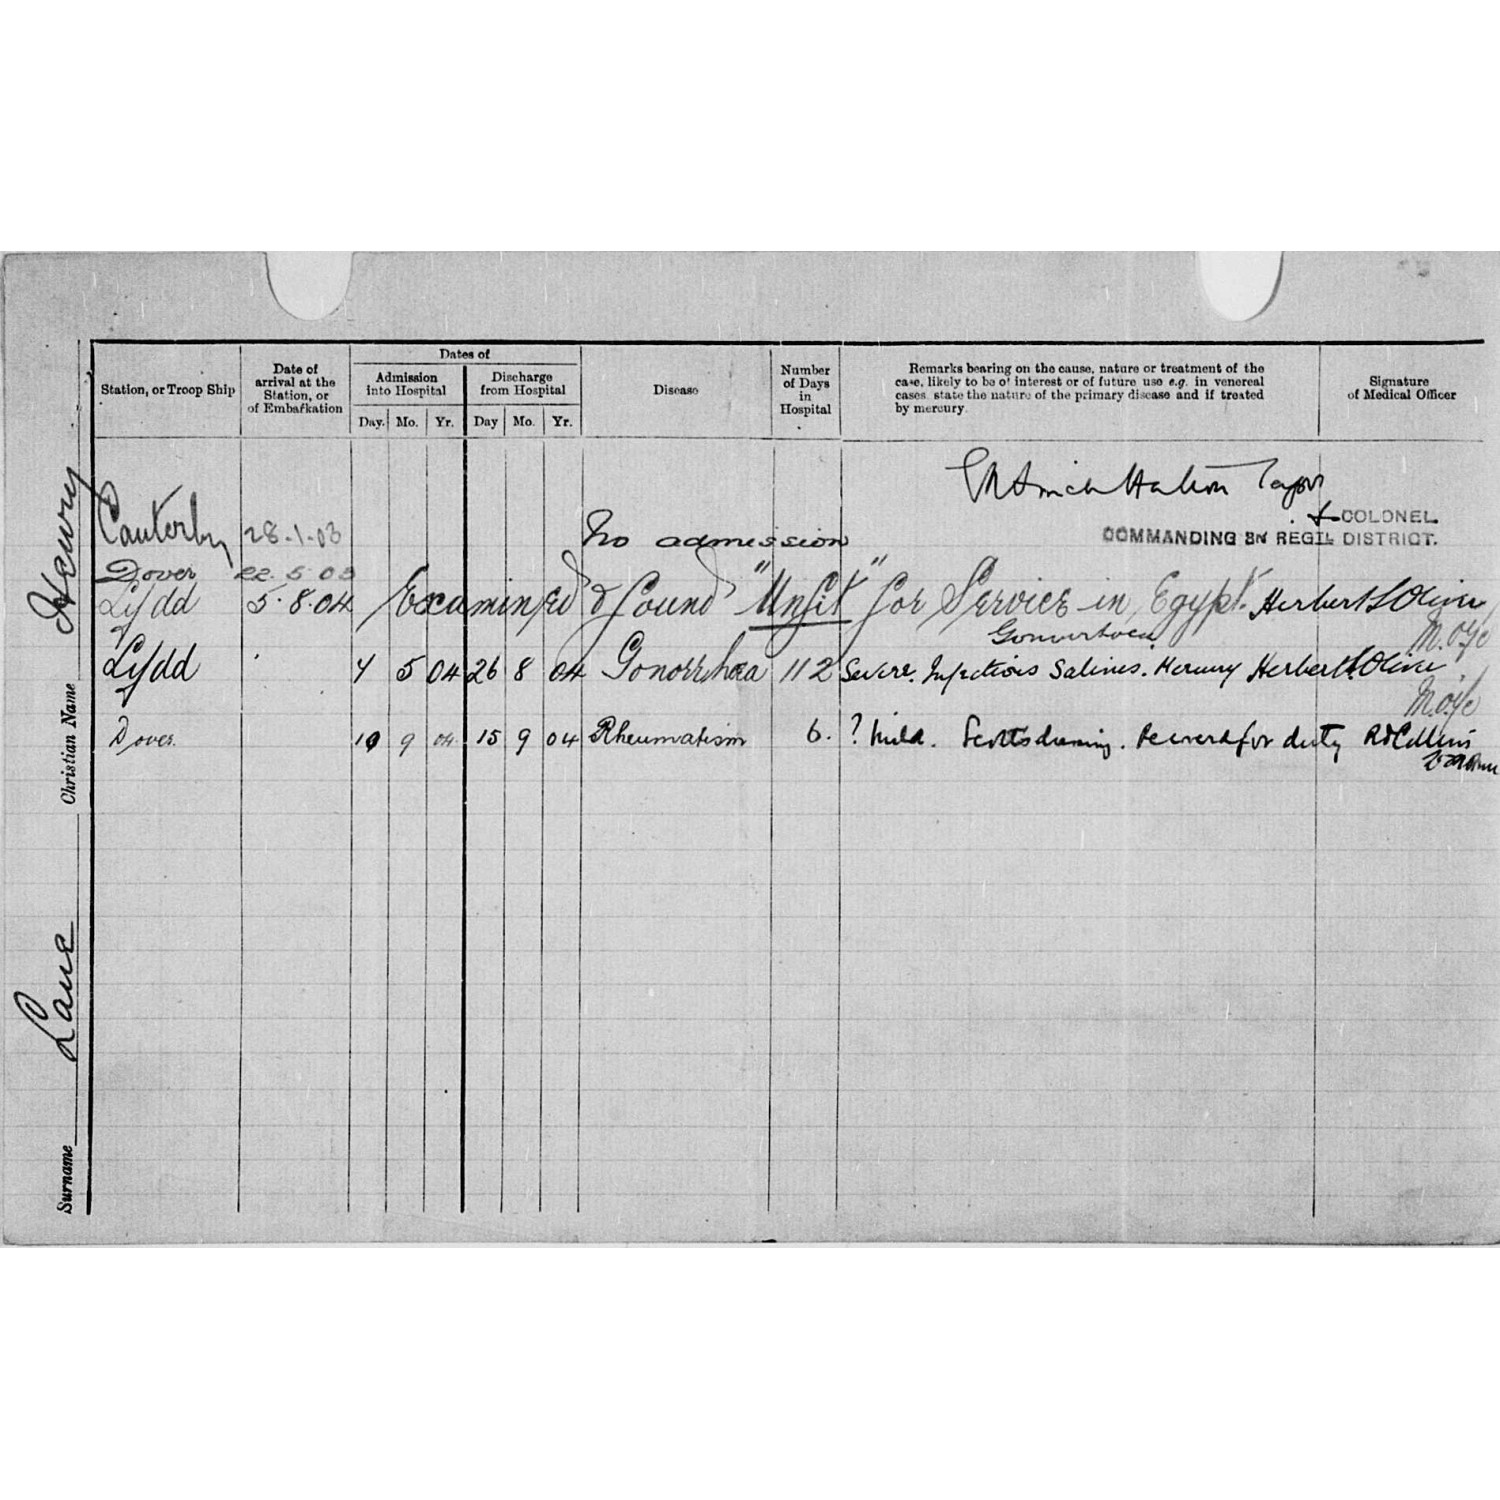 Dates of
Station, or Troop Ship
Date of
arrival at the
Station, or
of Embarkation
Admission
into Hospital
Discharge
from Hospital
Day. Mo. Yr. Day Mo. Yr.
Disease
Number
of Days
in
Hospital
Remarks bearing on the cause, nature or treatment of the
case, likely to be of interest or of future use e.g. in venereal
cases state the nature of the primary disease and if treated
by mercury.
Signature
of Medical Officer
COLONEL.
Canterbury 28.1.03 No admission COMMANDING 3RD REGTL DISTRICT.
Dover 22.5.03
Lydd 5.8.04 Examined & found "Unfit" for Service in Egypt. Herbert S Oliver
M.O. i/c
Lydd 7 5 04 26 8 04 Gonorrhœa 112 Severe. Injections Salines. Mercury Herbert S. Oliver
M.O. i/c
Dover. 10 9 04 15 9 04 Rheumatism 6. ? Mild. for duty
Surname Lane Christian Name Henry